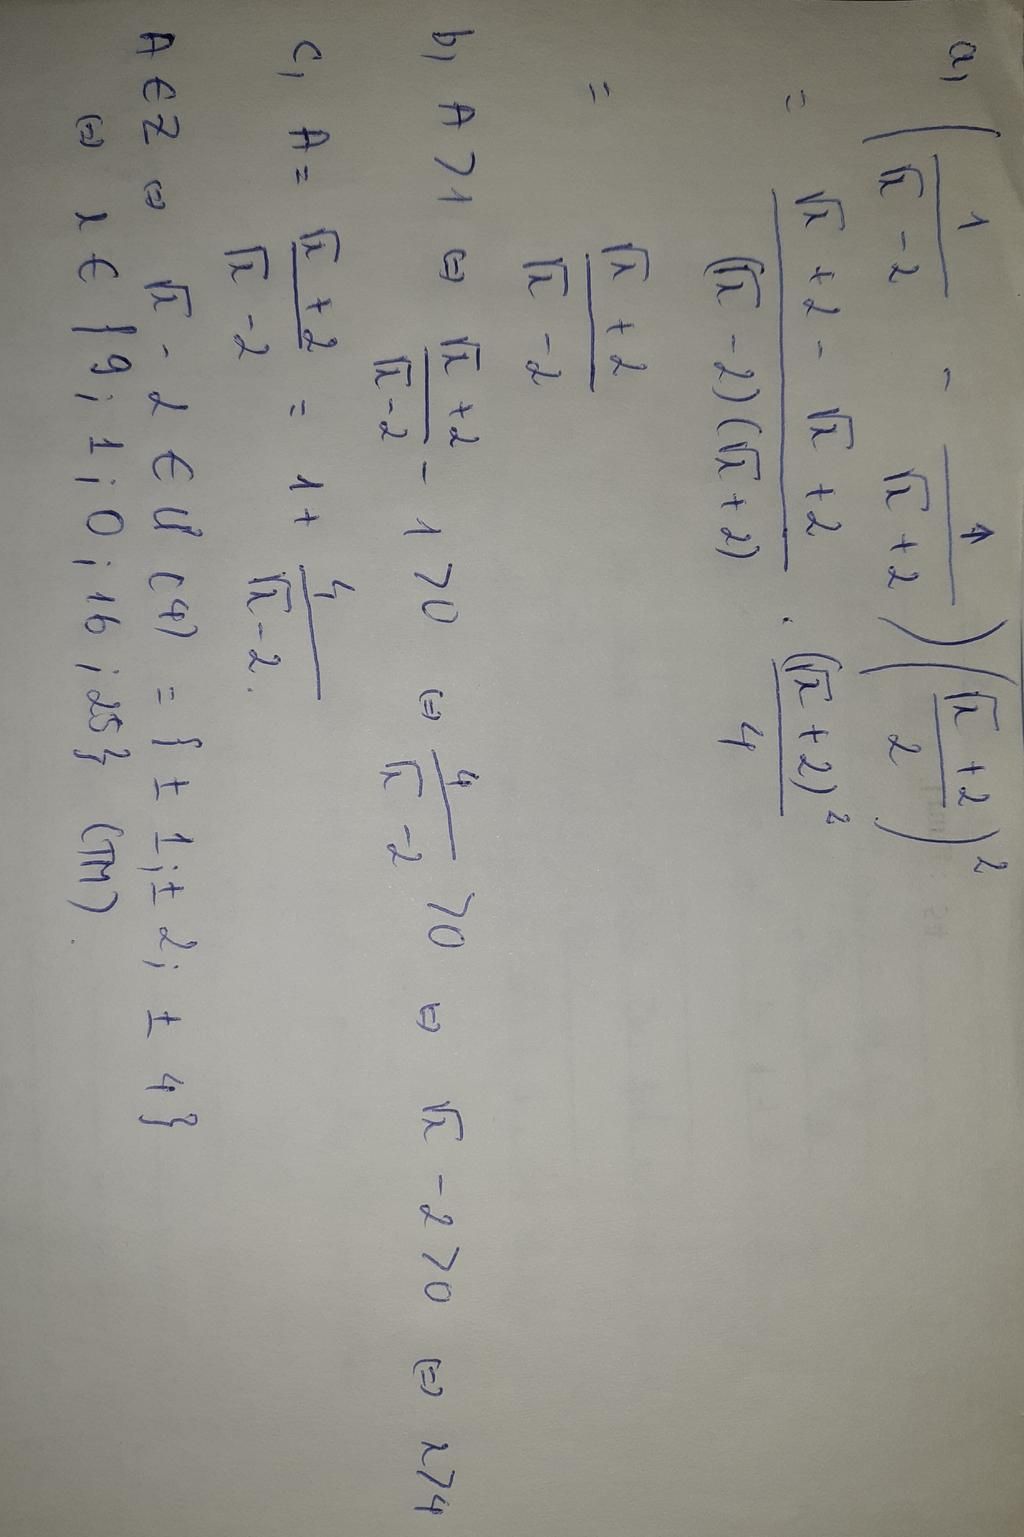 a, (1/(√x - 2) - 1/(√x + 2)) ((√x + 2)/2)²
= (√x + 2 - √x + 2)/((√x - 2)(√x + 2)) . (√x + 2)²/4
= (√x + 2)/(√x - 2)
b, A > 1 ⇔ (√x + 2)/(√x - 2) - 1 > 0 ⇔ 4/(√x - 2) > 0 ⇔ √x - 2 > 0 ⇔ x > 4
c, A = (√x + 2)/(√x - 2) = 1 + 4/(√x - 2).
A ∈ Z ⇔ √x - 2 ∈ Ư(4) = {± 1; ± 2; ± 4}
⇔ x ∈ {9; 1; 0; 16; 25} (TM).